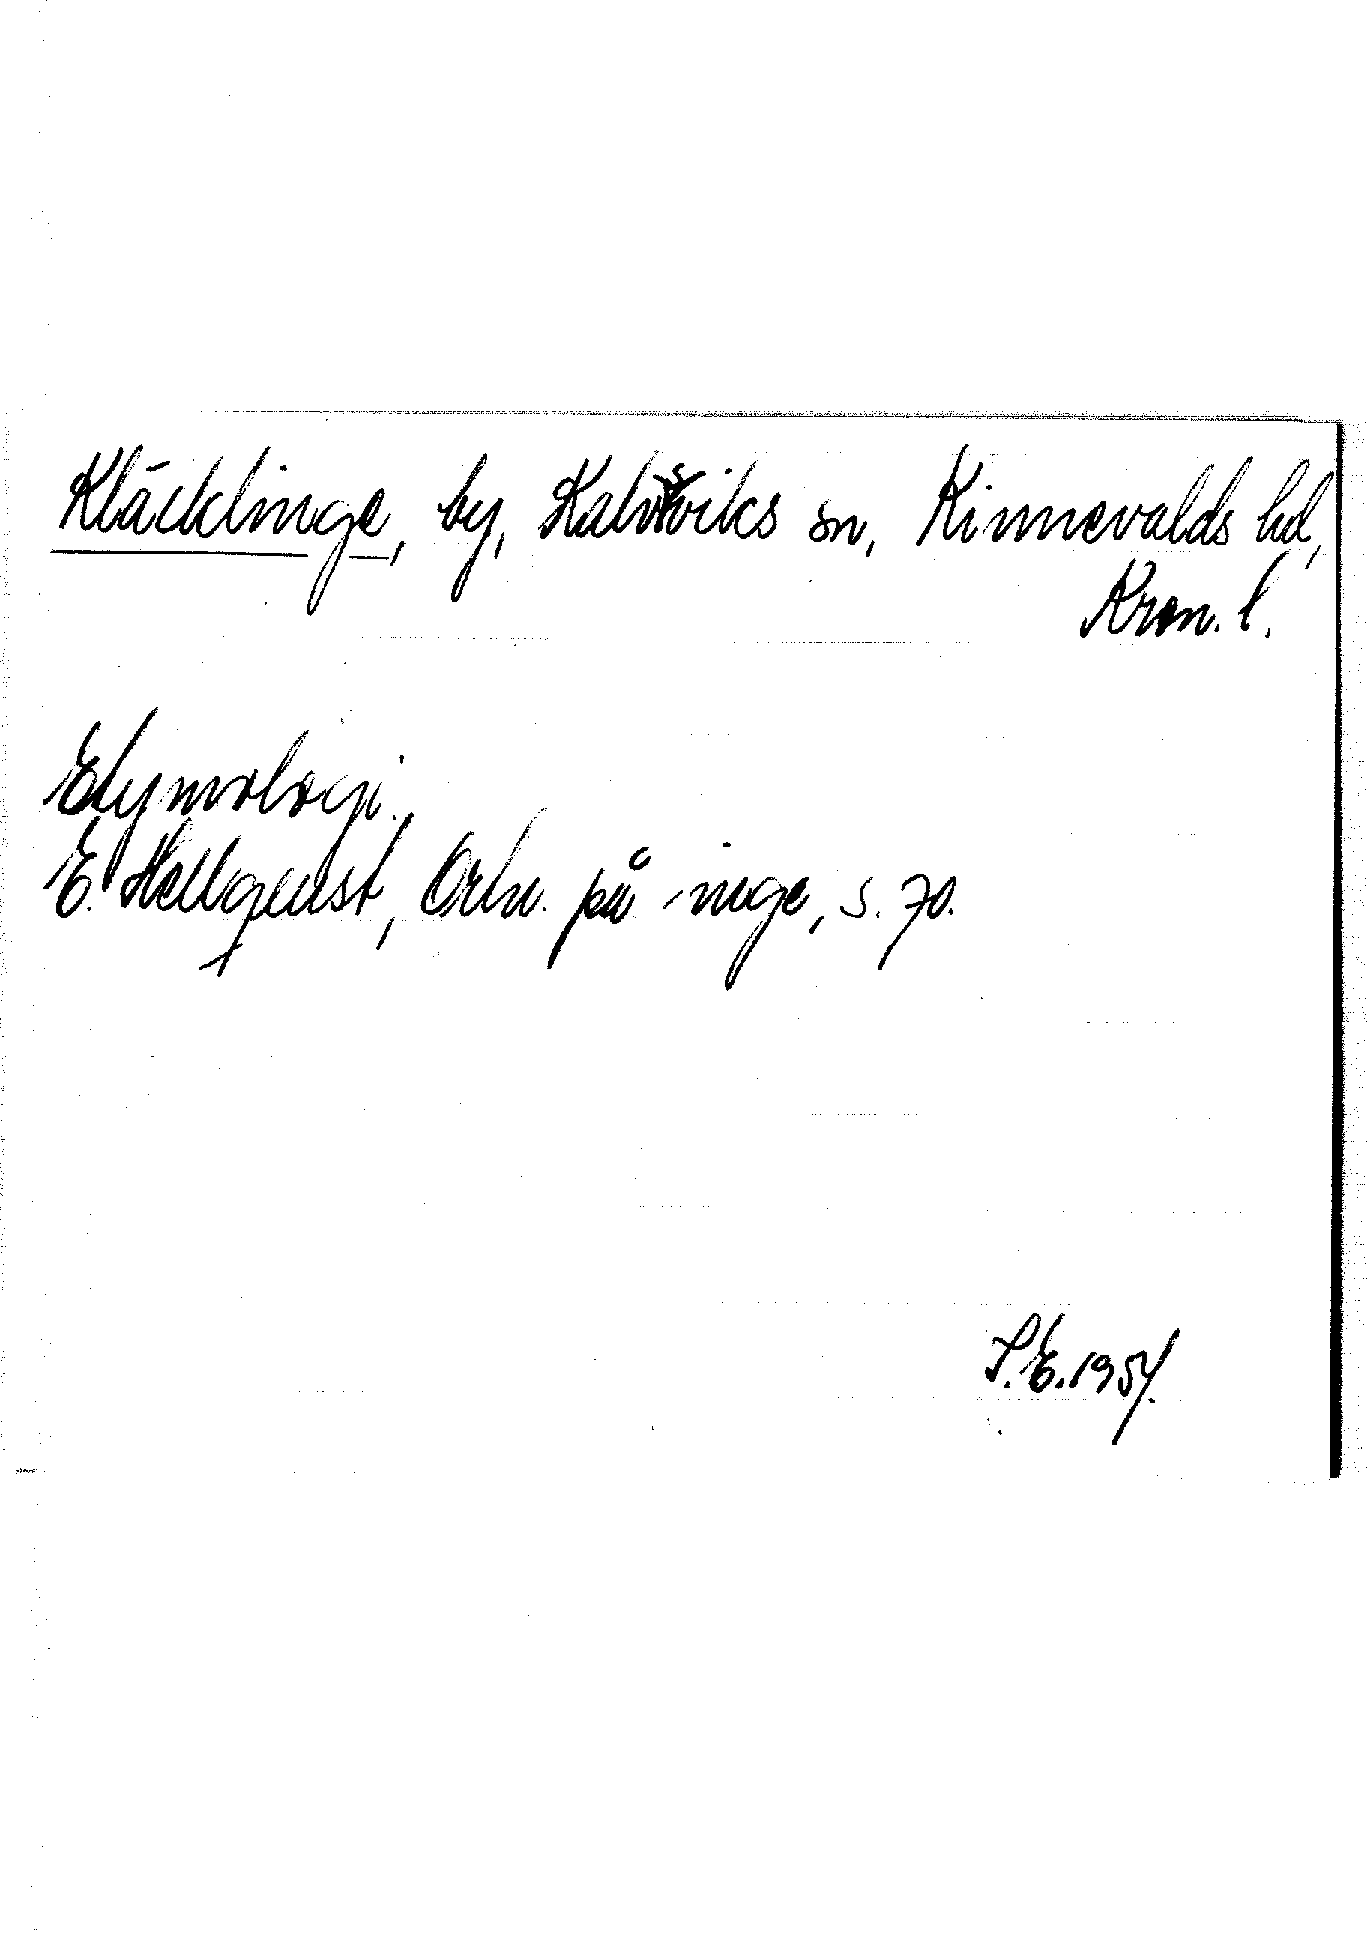 Kläcklinge, by, Kalvsviks sn, Kinnevalds hd,
Kron. l.
Etymologi.
E. Hellquist, Ortn. på -inge, s. 70.
S.E. 1957.